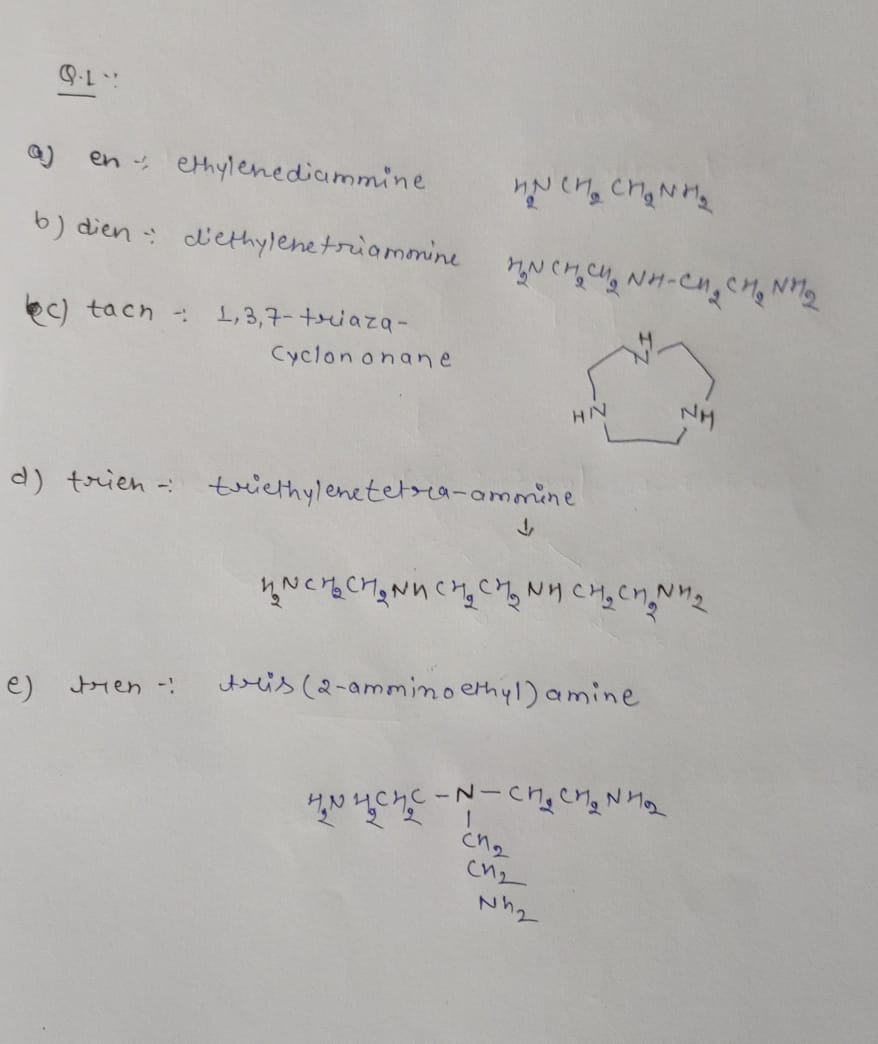 Q.1 :
a) en -: ethylenediammine H₂N CH₂ CH₂NH₂
b) dien -: diethylenetriammine H₂N CH₂CH₂ NH-CH₂CH₂NH₂
c) tacn -: 1,3,7-triaza-
cyclononane
H
N
HN NH
d) trien -: triethylenetetra-ammine
↓
H₂NCH₂CH₂NH CH₂CH₂ NH CH₂CH₂NH₂
e) tren -: tris(2-amminoethyl) amine
H₂N H₂CH₂C - N - CH₂ CH₂ NH₂
CH₂
CH₂
NH₂